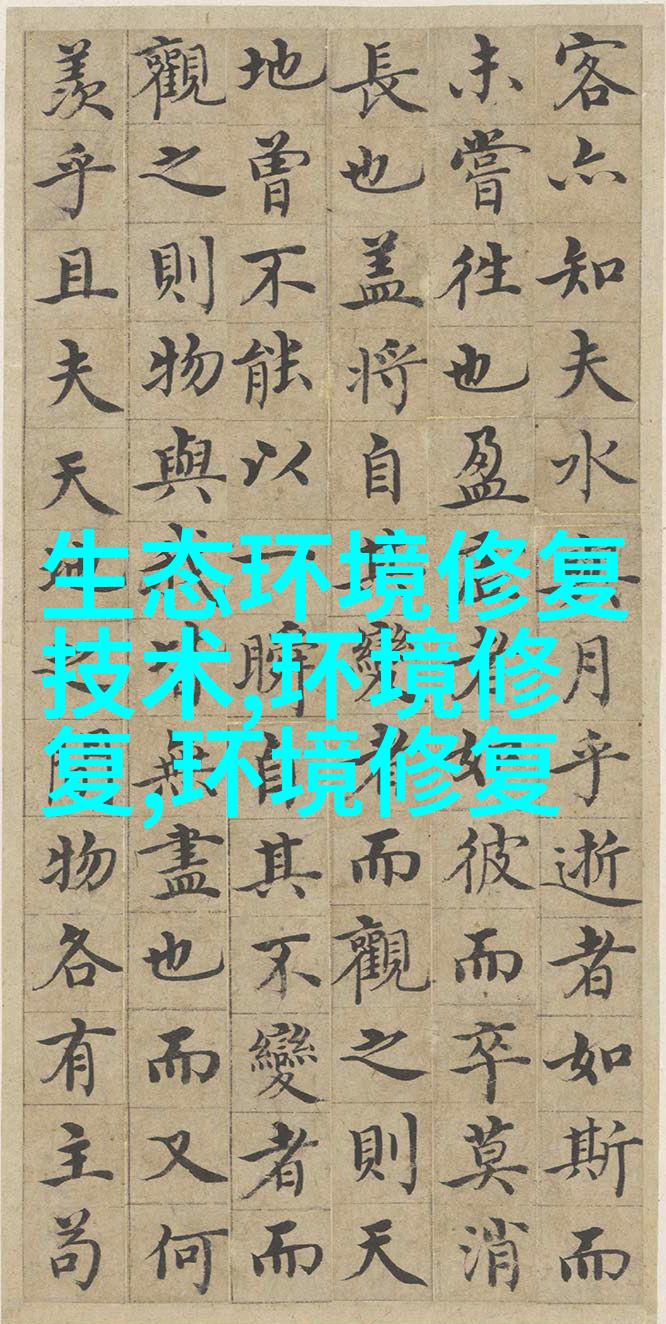 生态环境修复
技术,环境修
复,环境修复
客亦知夫水與月乎逝者如斯而
未嘗往也盈者如彼而卒莫消
長也盖將自其變者而觀之則天
地曾不能以一瞬自其不變者而
觀之則物與我皆無盡也而又何
羨乎且夫天地之間物各有主苟